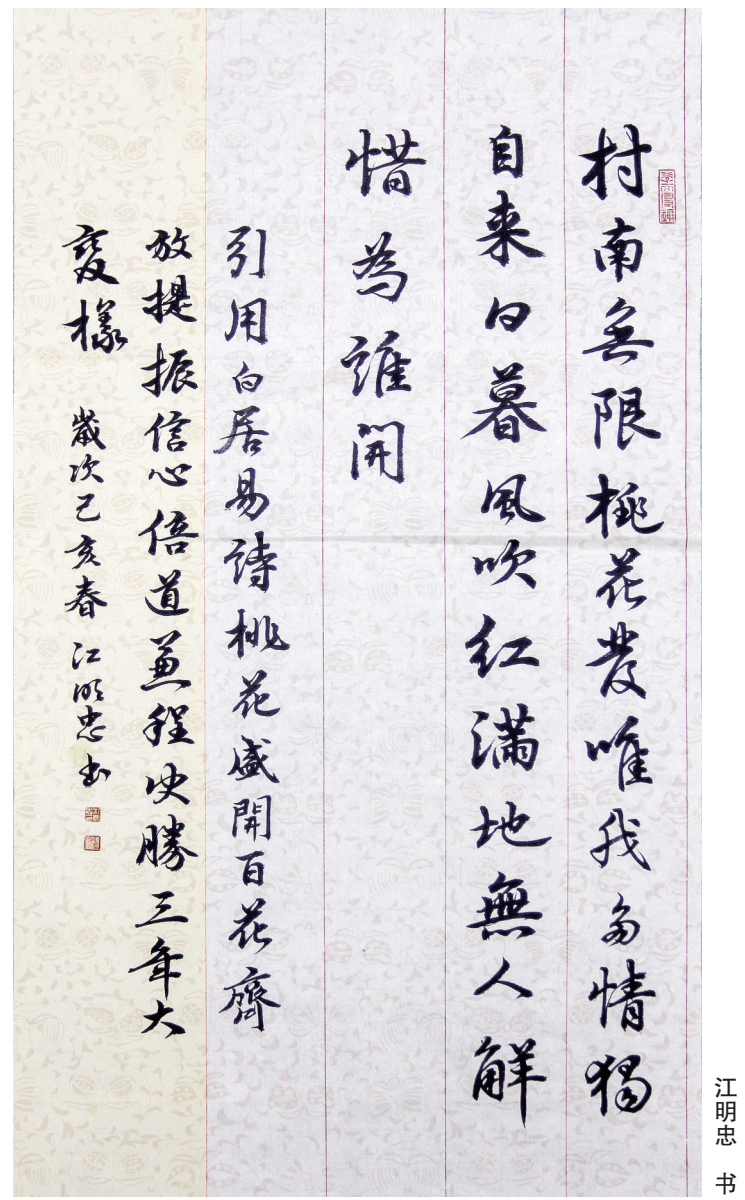 村南無限桃花發唯我多情獨
自来日暮風吹紅滿地無人解
惜為誰開
引用白居易詩桃花盛開百花齊
放提振信心倍道兼程决勝三年大
變樣 歲次己亥春 江明忠书
江明忠 书